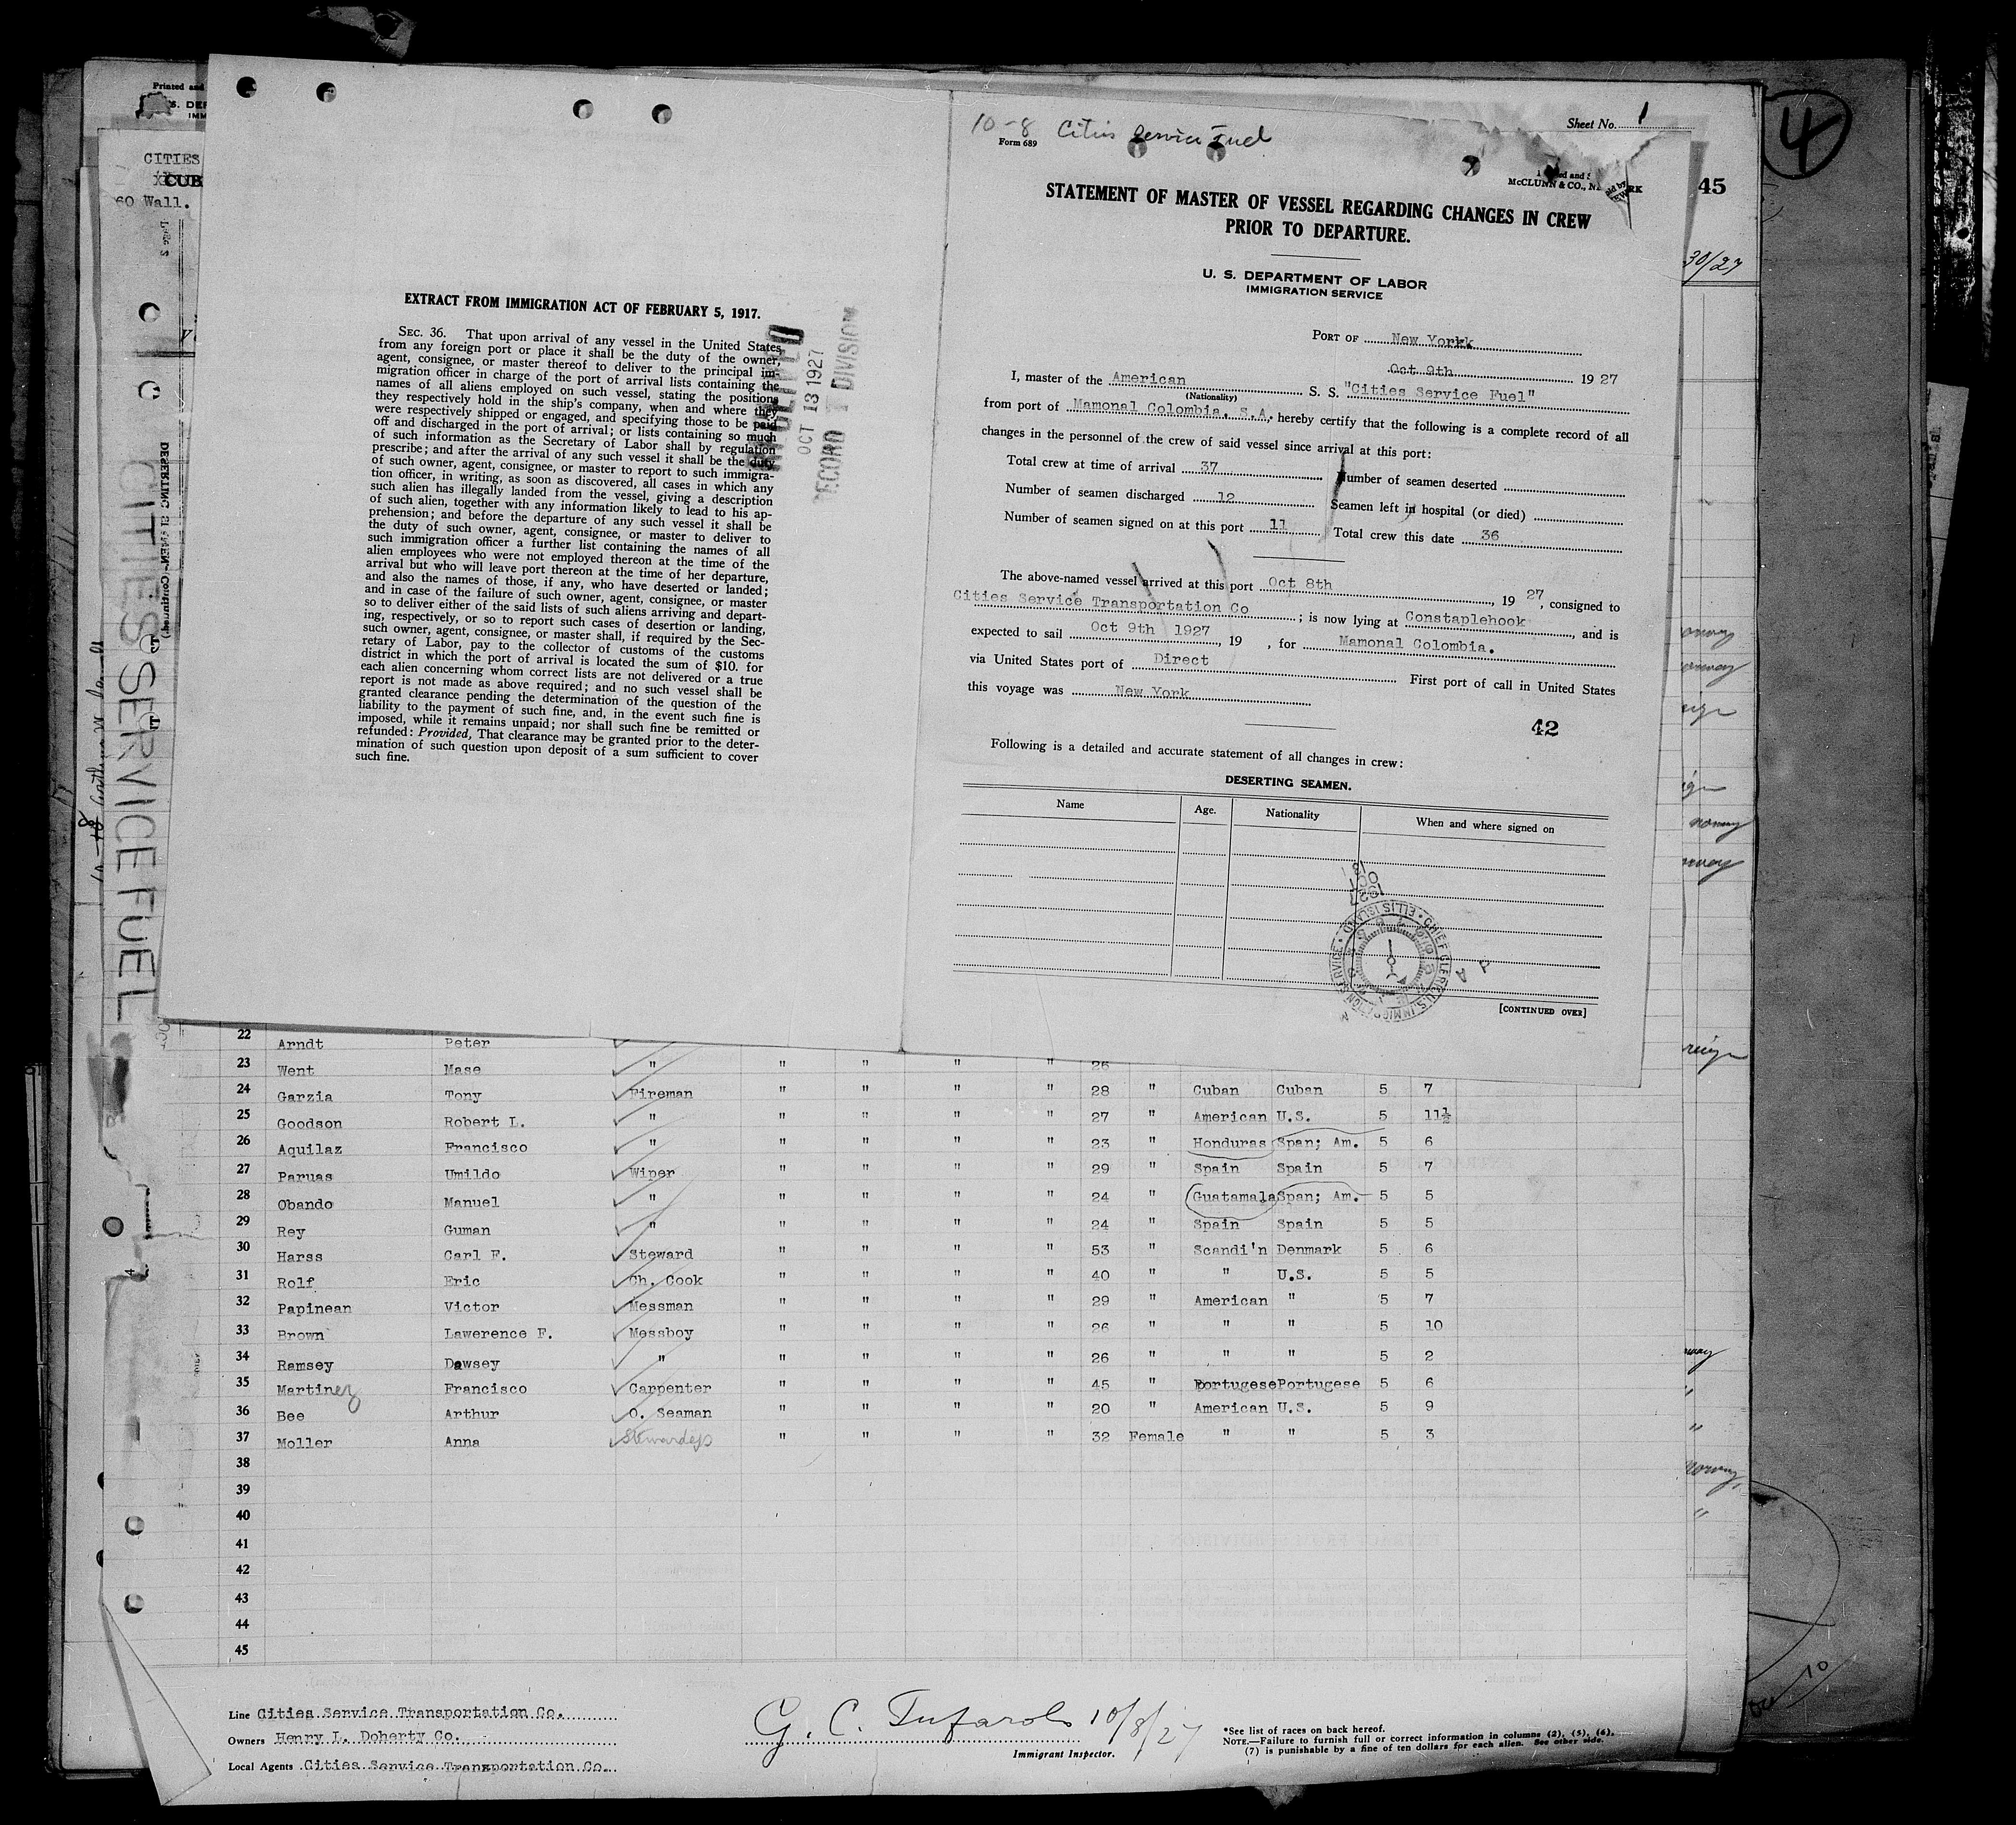 Printed and
S. DEP
IMM
CITIES
CUB
60 Wall.
CITIES SERVICE FUEL
DESERTING SEAMEN—(Continued)
EXTRACT FROM IMMIGRATION ACT OF FEBRUARY 5, 1917.
SEC. 36. That upon arrival of any vessel in the United States
from any foreign port or place it shall be the duty of the owner,
agent, consignee, or master thereof to deliver to the principal im-
migration officer in charge of the port of arrival lists containing the
names of all aliens employed on such vessel, stating the positions
they respectively hold in the ship's company, when and where they
were respectively shipped or engaged, and specifying those to be paid
off and discharged in the port of arrival; or lists containing so much
of such information as the Secretary of Labor shall by regulation
prescribe; and after the arrival of any such vessel it shall be the duty
of such owner, agent, consignee, or master to report to such immigra-
tion officer, in writing, as soon as discovered, all cases in which any
such alien has illegally landed from the vessel, giving a description
of such alien, together with any information likely to lead to his ap-
prehension; and before the departure of any such vessel it shall be
the duty of such owner, agent, consignee, or master to deliver to
such immigration officer a further list containing the names of all
alien employees who were not employed thereon at the time of the
arrival but who will leave port thereon at the time of her departure,
and also the names of those, if any, who have deserted or landed;
and in case of the failure of such owner, agent, consignee, or master
so to deliver either of the said lists of such aliens arriving and depart-
ing, respectively, or so to report such cases of desertion or landing,
such owner, agent, consignee, or master shall, if required by the Sec-
retary of Labor, pay to the collector of customs of the customs
district in which the port of arrival is located the sum of $10. for
each alien concerning whom correct lists are not delivered or a true
report is not made as above required; and no such vessel shall be
granted clearance pending the determination of the question of the
liability to the payment of such fine, and, in the event such fine is
imposed, while it remains unpaid; nor shall such fine be remitted or
refunded: Provided, That clearance may be granted prior to the deter-
mination of such question upon deposit of a sum sufficient to cover
such fine.
OCT 13 1927
RECORD DIVISION
10-8 Cities Service Fuel
Form 689
Sheet No. 1
McCLUNN & CO., NEW YORK
4
45
30/27
STATEMENT OF MASTER OF VESSEL REGARDING CHANGES IN CREW
PRIOR TO DEPARTURE.
U. S. DEPARTMENT OF LABOR
IMMIGRATION SERVICE
PORT OF New Yorkk
Oct 9th 1927
I, master of the American S. S. "Cities Service Fuel"
(Nationality)
from port of Mamonal Colombia. S.A., hereby certify that the following is a complete record of all
changes in the personnel of the crew of said vessel since arrival at this port:
Total crew at time of arrival 37 Number of seamen deserted
Number of seamen discharged 12 Seamen left in hospital (or died)
Number of seamen signed on at this port 11 Total crew this date 36
The above-named vessel arrived at this port Oct 8th, 1927, consigned to
Cities Service Transportation Co; is now lying at Constaplehook, and is
expected to sail Oct 9th 1927, 19 , for Mamonal Colombia.
via United States port of Direct First port of call in United States
this voyage was New York
42
Following is a detailed and accurate statement of all changes in crew:
DESERTING SEAMEN.
Name Age. Nationality When and where signed on
OCT 13 1927
CHIEF CLERK U.S. IMMIGRATION SERVICE • ELLIS ISLAND •
[CONTINUED OVER]
22 Arndt Peter
23 Went Mase " " " " " 26
24 Garzia Tony Fireman " " " " 28 " Cuban Cuban 5 7
25 Goodson Robert L. " " " " " 27 " American U.S. 5 11½
26 Aquilaz Francisco " " " " " 23 " Honduras Span; Am. 5 6
27 Paruas Umildo Wiper " " " " 29 " Spain Spain 5 7
28 Obando Manuel " " " " " 24 " Guatamala Span; Am. 5 5
29 Rey Guman " " " " " 24 " Spain Spain 5 5
30 Harss Carl F. Steward " " " " 53 " Scandi'n Denmark 5 6
31 Rolf Eric Ch. Cook " " " " 40 " " U.S. 5 5
32 Papinean Victor Messman " " " " 29 " American " 5 7
33 Brown Lawerence F. Messboy " " " " 26 " " " 5 10
34 Ramsey Dawsey " " " " " 26 " " " 5 2
35 Martinez Francisco Carpenter " " " " 45 " Portugese Portugese 5 6
36 Bee Arthur O. Seaman " " " " 20 " American U.S. 5 9
37 Moller Anna Stewardess " " " " 32 Female " " 5 3
38
39
40
41
42
43
44
45
Line Cities Service Transportation Co.
Owners Henry L. Doherty Co.
Local Agents Cities Service Transportation Co.
G. C. Tufarolo 10/8/27
Immigrant Inspector.
*See list of races on back hereof.
NOTE.—Failure to furnish full or correct information in columns (2), (5), (6),
(7) is punishable by a fine of ten dollars for each alien. See other side.